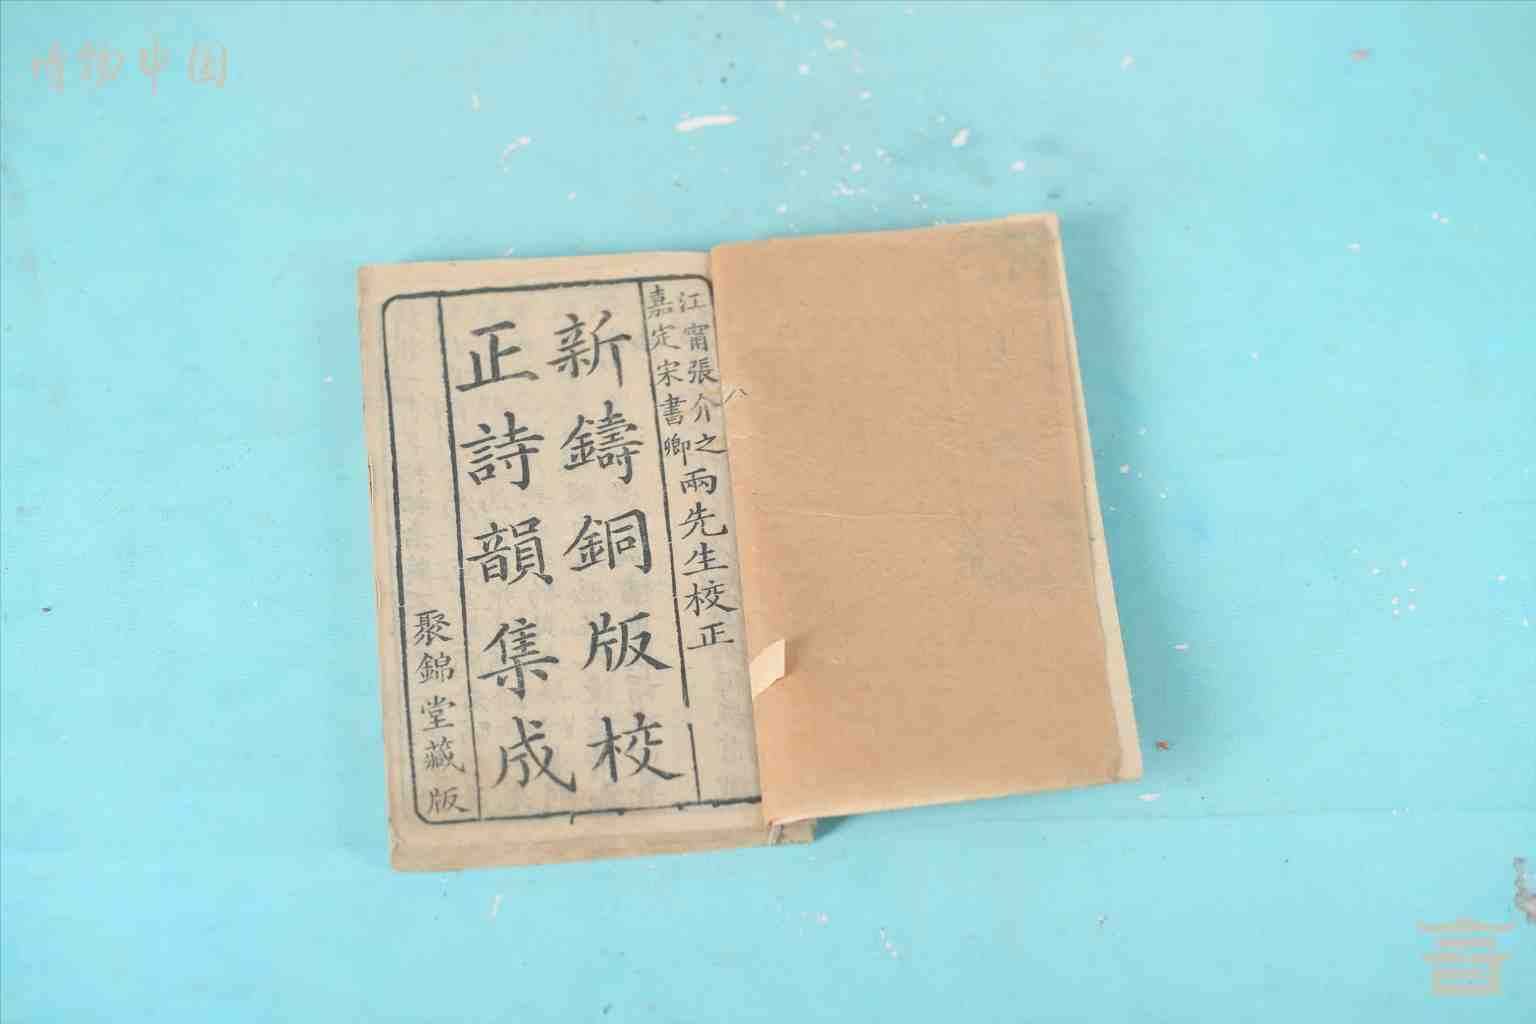 博物中国
江甯張介之
嘉定宋書卿
兩先生校正
新鑄銅版校
正詩韻集成
聚錦堂藏版